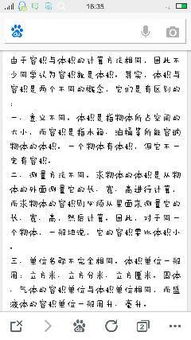 16:35
由于容积与体积的计算方法相同，因此不
少同学认为容积就是体积。其实，体积与
容积是两个不同的概念，它们是有区别
的：
一、意义不同，体积是指物体所占空间的
大小，而容积是指木箱、油桶等所能容纳
物体的体积，一个物体有体积，但它不一
定有容积。
二、测量方法不同，求物体的体积是从物
体的外面测量它的长、宽、高进行计算，
而求物体的容积则必须从里面来测量它的
长、宽、高，然后计算。因此，对于同一
个物体，一般地说，它的容积要比体积小
三、单位名称不完全相同，体积单位一般
用：立方米、立方分米、立方厘米，固体
、气体的容积单位与体积单位相同，而盛
液体的容积单位一般用升、毫升。
2